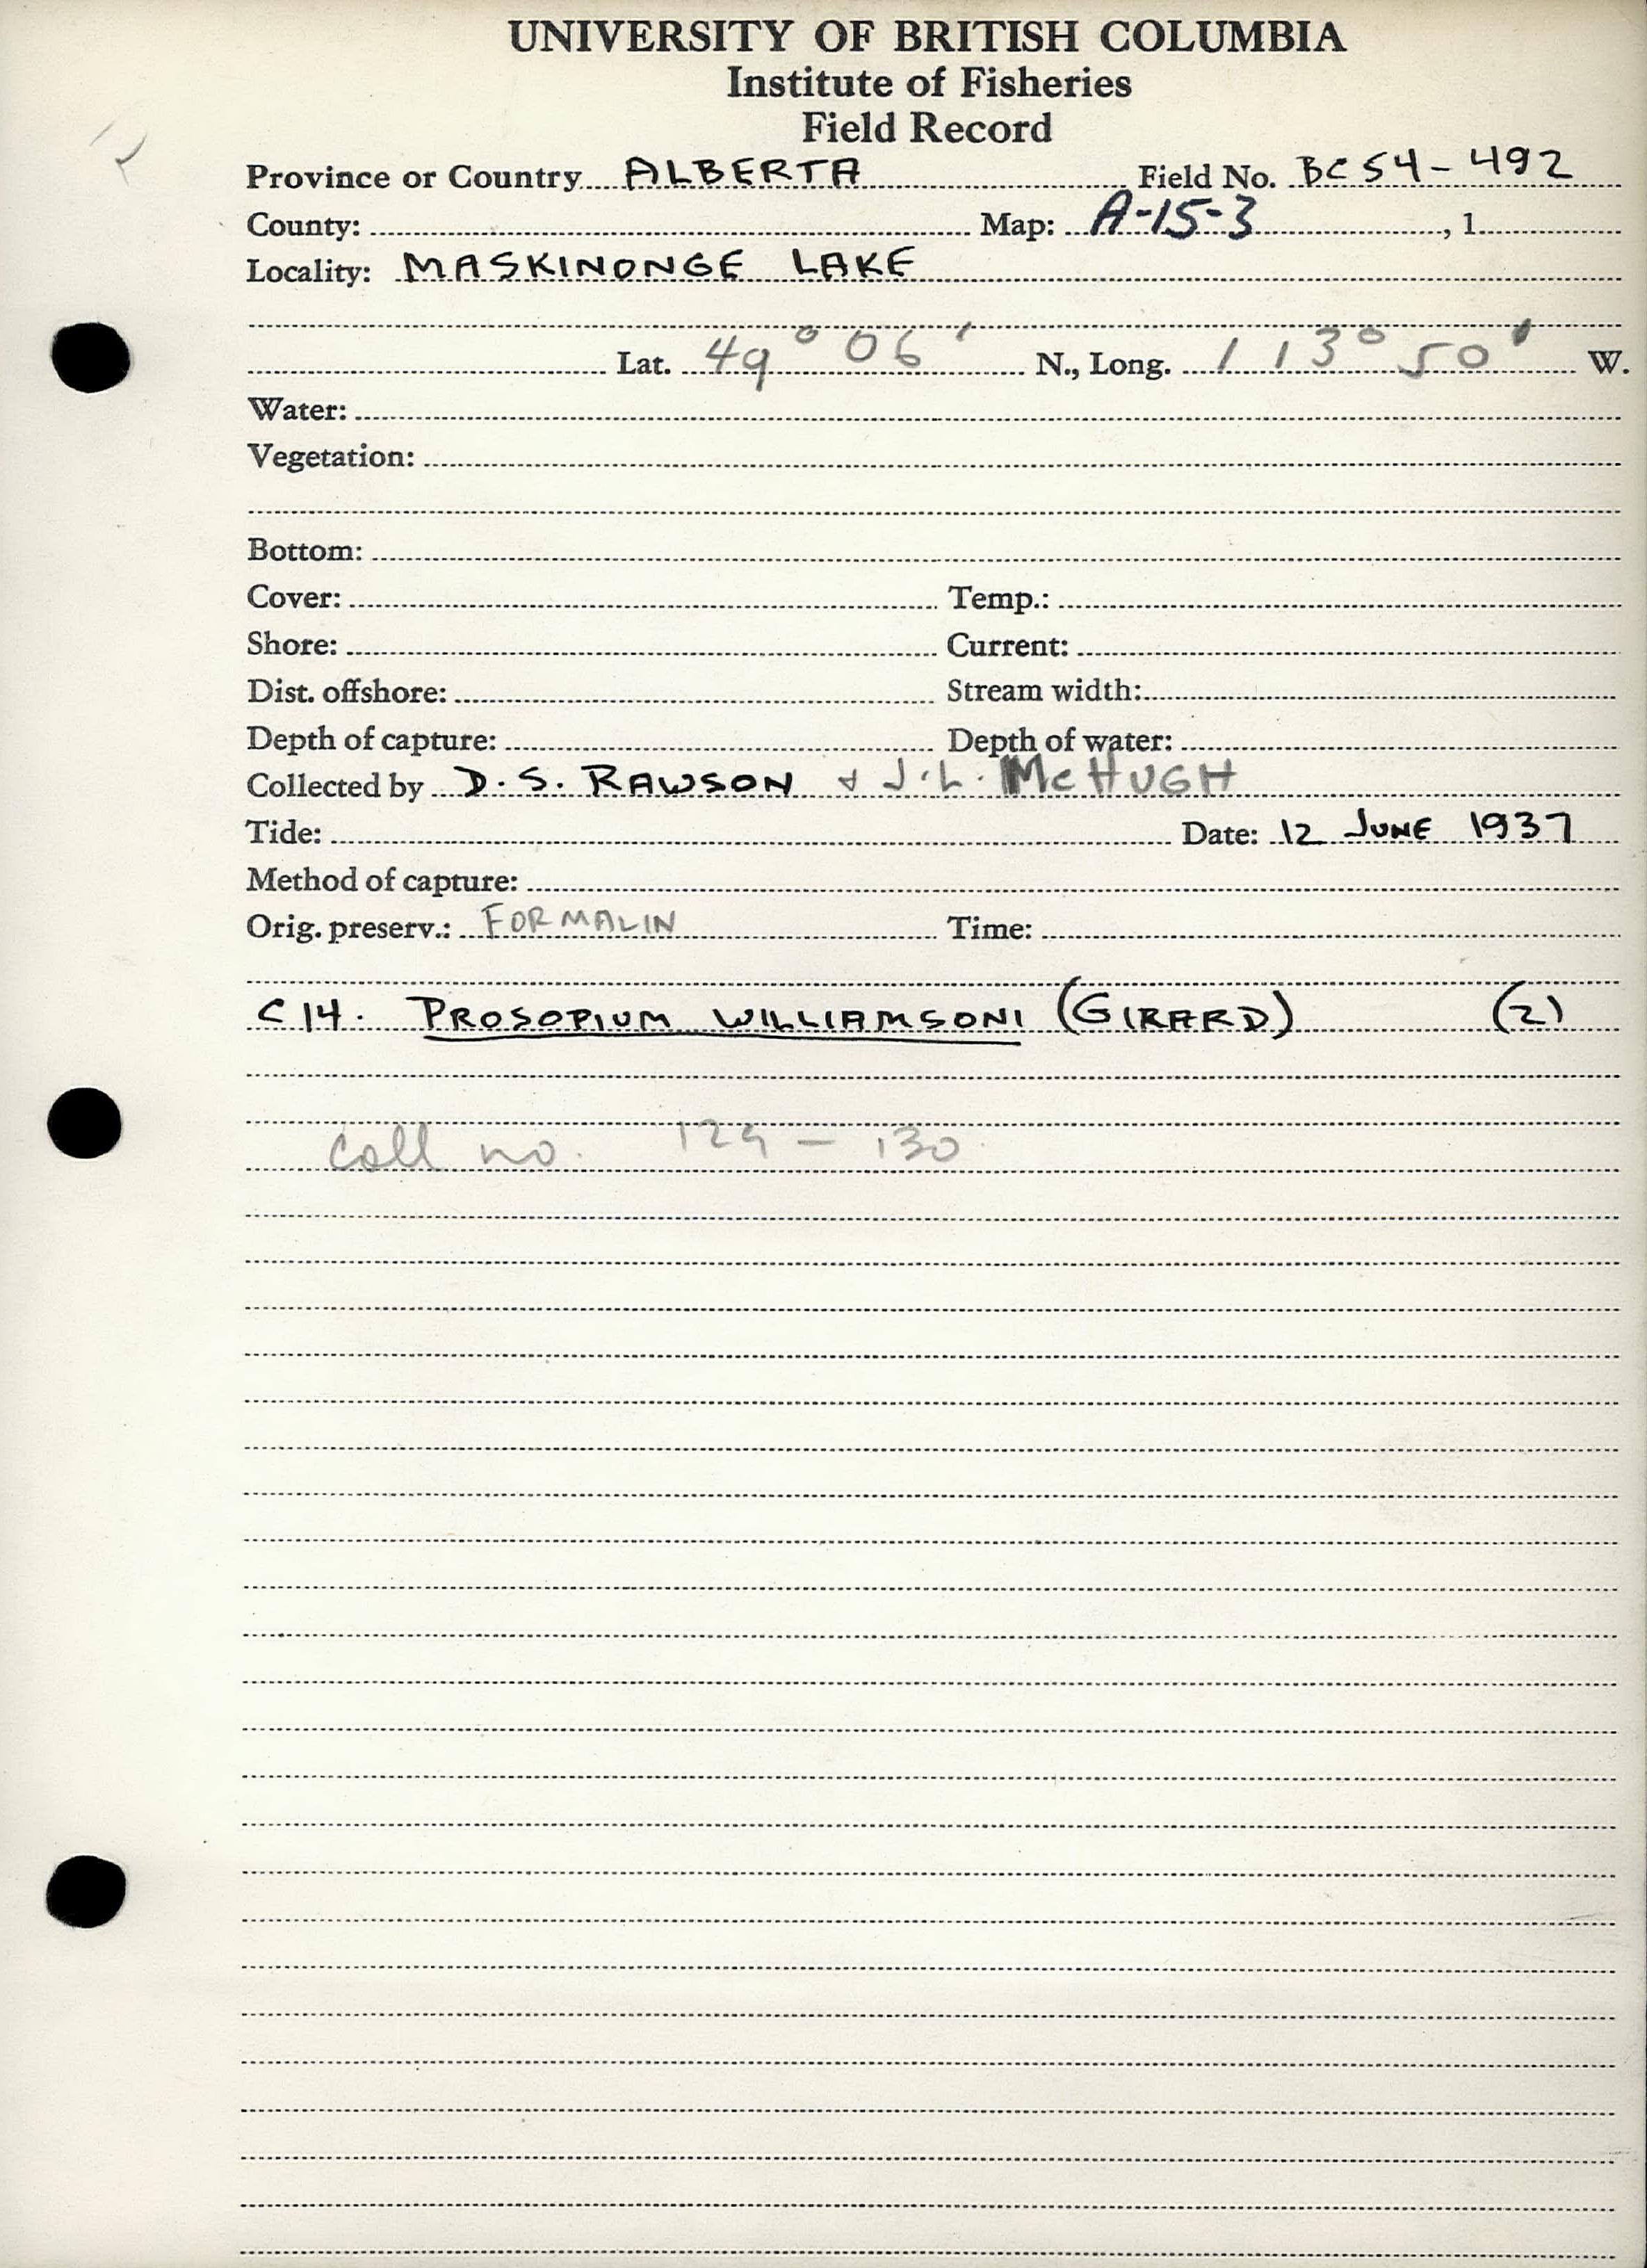 UNIVERSITY OF BRITISH COLUMBIA
Institute of Fisheries
Field Record
Province or Country ALBERTA Field No. BC 54-492
County: Map: A-15-3 , 1
Locality: MASKINONGE LAKE
Lat. 49° 06' N., Long. 113° 50' W.
Water:
Vegetation:
Bottom:
Cover: Temp.:
Shore: Current:
Dist. offshore: Stream width:
Depth of capture: Depth of water:
Collected by D. S. RAWSON & J. L. McHUGH
Tide: Date: 12 JUNE 1937
Method of capture:
Orig. preserv.: FORMALIN Time:
C 14. PROSOPIUM WILLIAMSONI (GIRARD) (2)
Coll no. 129 - 130